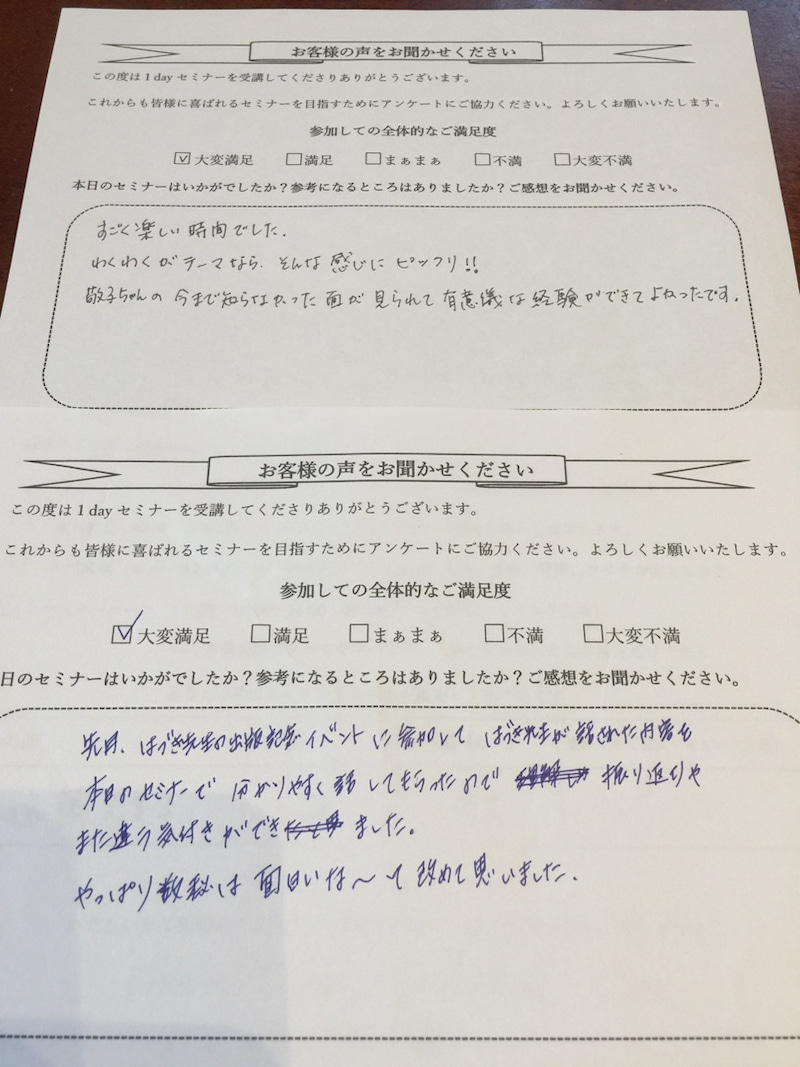 お客様の声をお聞かせください
この度は1 dayセミナーを受講してくださりありがとうございます。
これからも皆様に喜ばれるセミナーを目指すためにアンケートにご協力ください。よろしくお願いいたします。
参加しての全体的なご満足度
☑大変満足 □満足 □まぁまぁ □不満 □大変不満
本日のセミナーはいかがでしたか？参考になるところはありましたか？ご感想をお聞かせください。
すごく楽しい時間でした。
わくわくがテーマなら、そんな感じにピッフリ!!
敬子ちゃんの今まで知らなかった面が見られて有意儀な経験ができてよかったです。
お客様の声をお聞かせください
この度は1 dayセミナーを受講してくださりありがとうございます。
これからも皆様に喜ばれるセミナーを目指すためにアンケートにご協力ください。よろしくお願いいたします。
参加しての全体的なご満足度
☑大変満足 □満足 □まぁまぁ □不満 □大変不満
日のセミナーはいかがでしたか？参考になるところはありましたか？ご感想をお聞かせください。
先月、はづき先生の出版記念イベントに参加してはづき先生が話された内容を
本日のセミナーで分かりやすく話してもらったので振り返りや
また違う気付きができました。
やっぱり数秘は面白いな〜って改めて思いました。